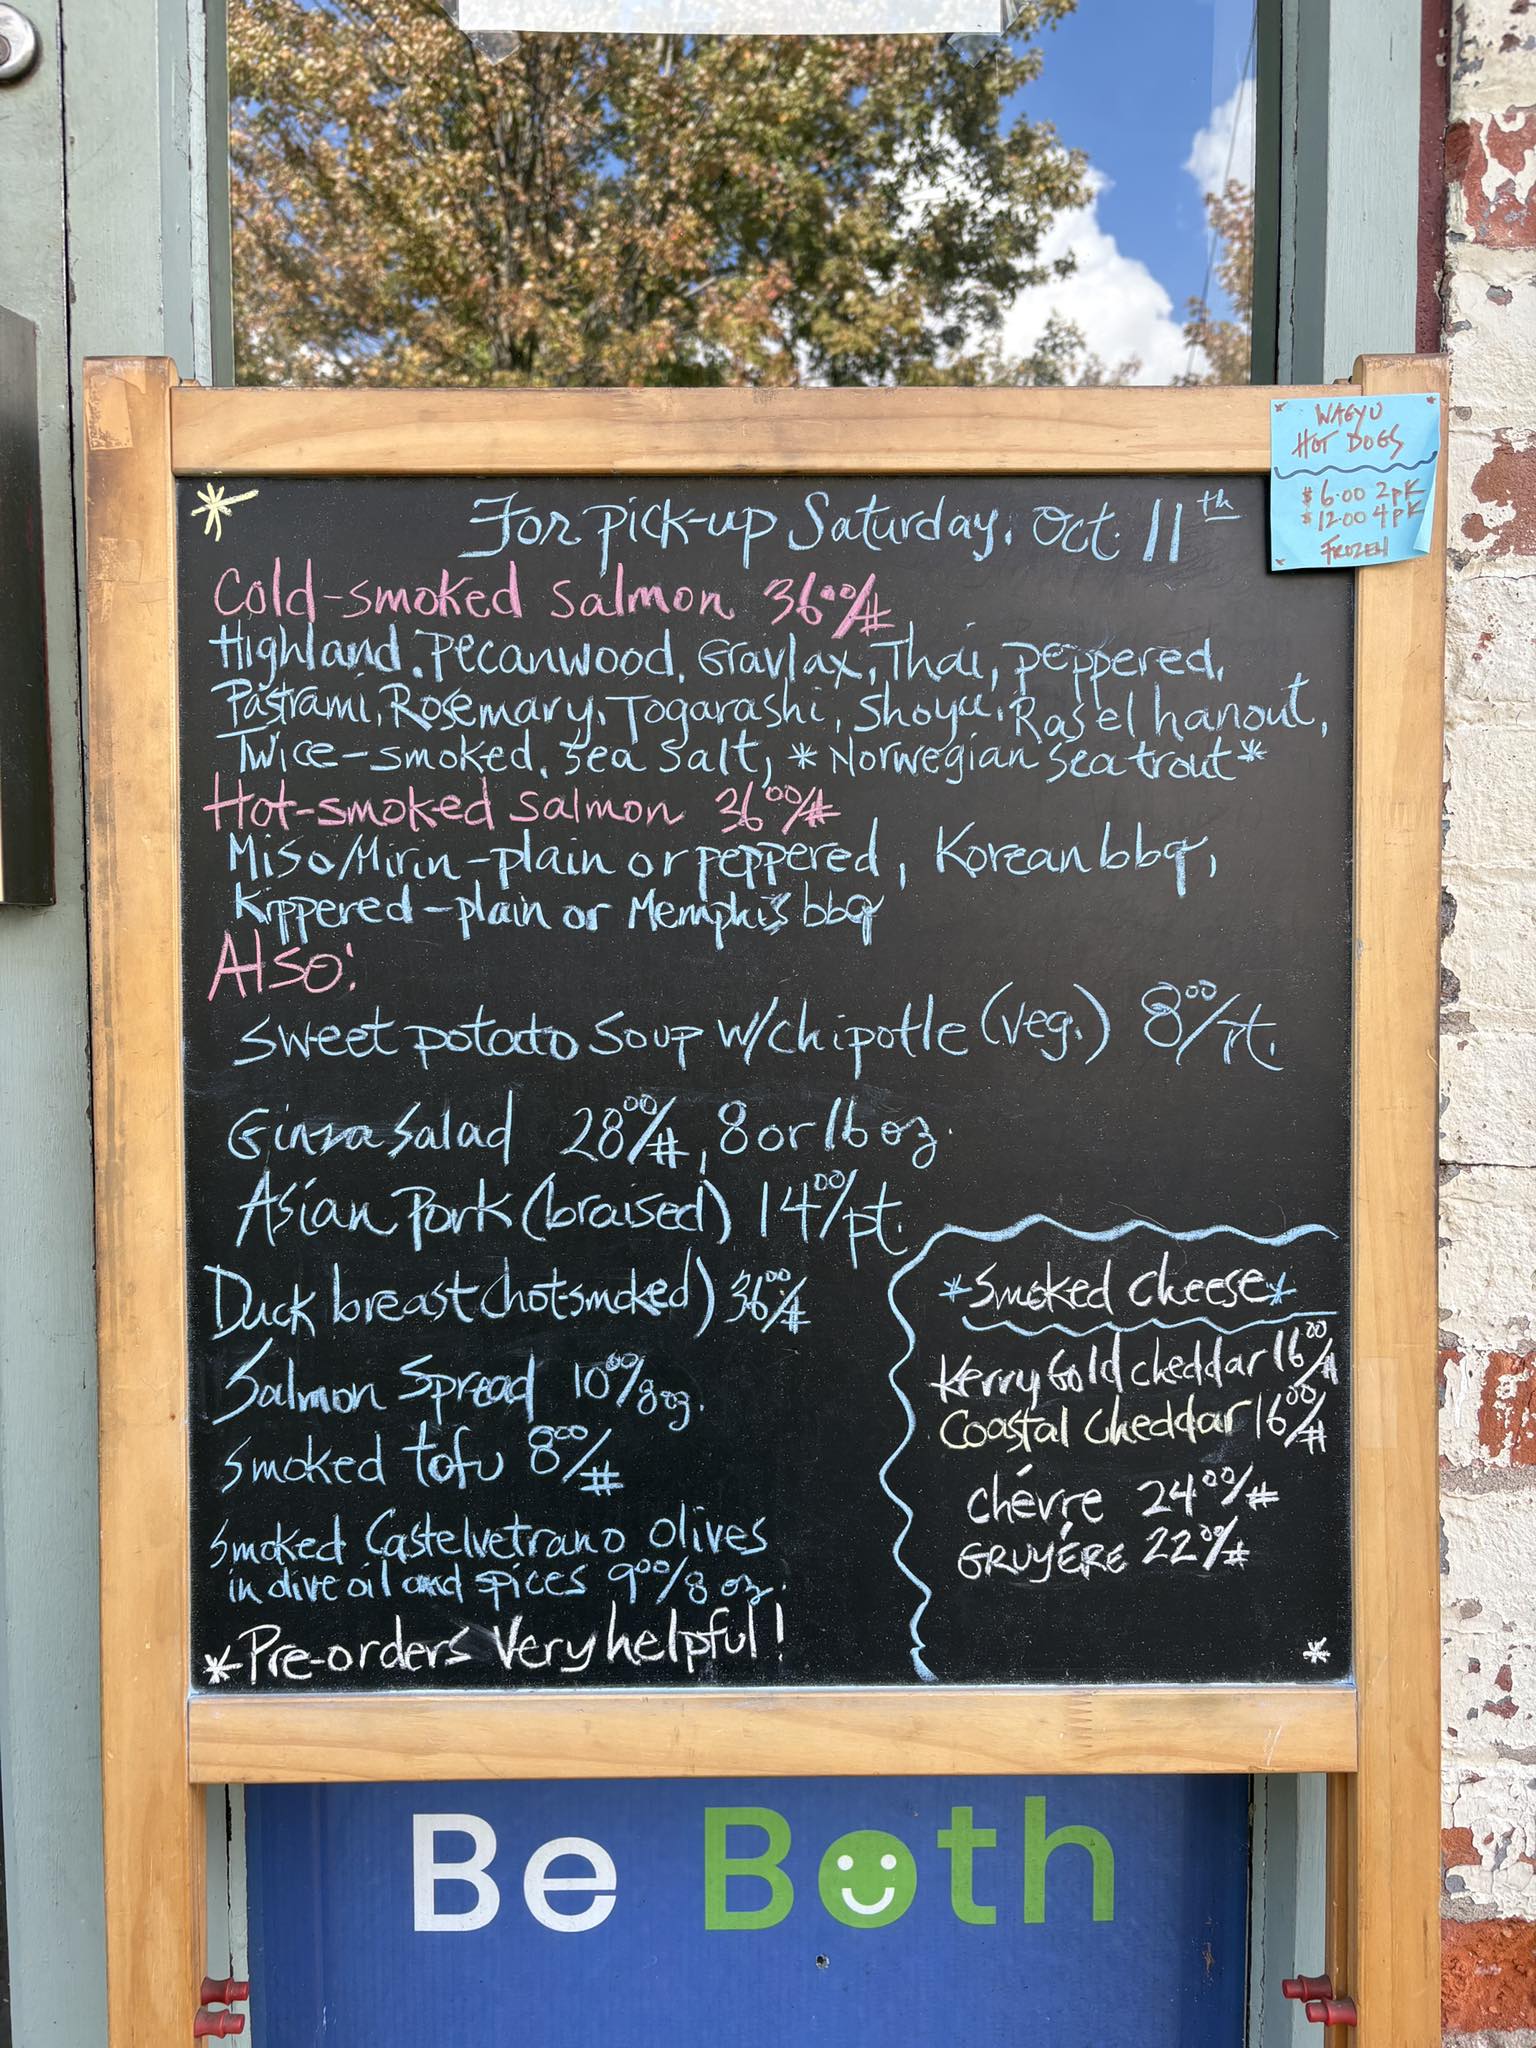 WAGYU
HOT DOGS
$6.00 2pK
$12.00 4pK
FROZEN
For pick-up Saturday, Oct. 11th
Cold-smoked salmon 36.00/#
Highland, Pecanwood, Gravlax, Thai, peppered,
Pastrami, Rosemary, Togarashi, Shoyu, Ras el hanout,
Twice-smoked, Sea Salt, *Norwegian Sea trout*
Hot-smoked Salmon 36.00/#
Miso/Mirin-plain or peppered, Korean bbq,
Kippered-plain or Memphis bbq
Also:
Sweet potato Soup w/chipotle (veg.) 8.00/pt.
Ginza Salad 28.00/#, 8 or 16 oz.
Asian Pork (braised) 14.00/pt.
Duck breast (hot-smoked) 36.00/#
Salmon Spread 10.00/8oz.
Smoked tofu 8.00/#
Smoked Castelvetrano Olives
in olive oil and spices 9.00/8 oz.
*Pre-orders Very helpful!
*Smoked cheese*
KerryGold cheddar 16.00/#
Coastal cheddar 16.00/#
chévre 24.00/#
GRUYÉRE 22.00/#
*
Be Both